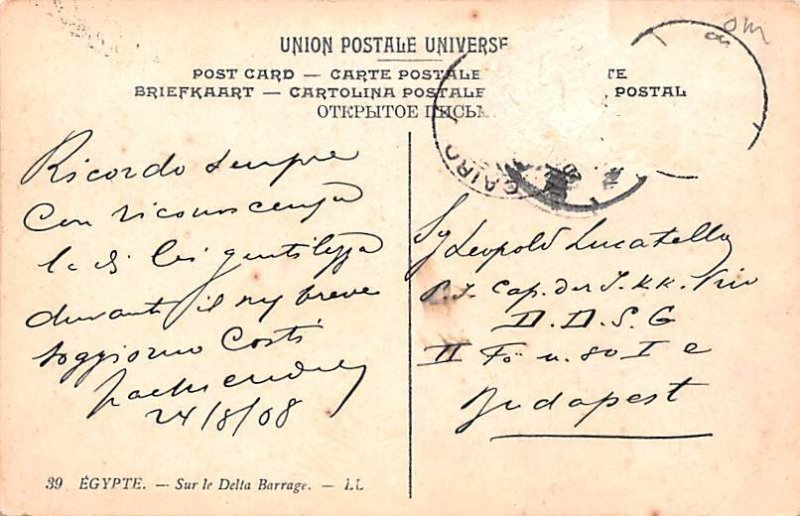 UNION POSTALE UNIVERSE
POST CARD — CARTE POSTALE TE
BRIEFKAART — CARTOLINA POSTALE POSTAL
ОТКРЫТОЕ ПИСЬМ
CAIRO
Ricordo sempre
Con riconoscenza
la di lei gentilezza
durante il my breve
soggiorno Costi
24/8/08
Sg Leopold Lucatello
Cap. der I. KK. Priv
D. D. S. G
II Fö u. 80 I e
Budapest
39 ÉGYPTE. — Sur le Delta Barrage. — LL